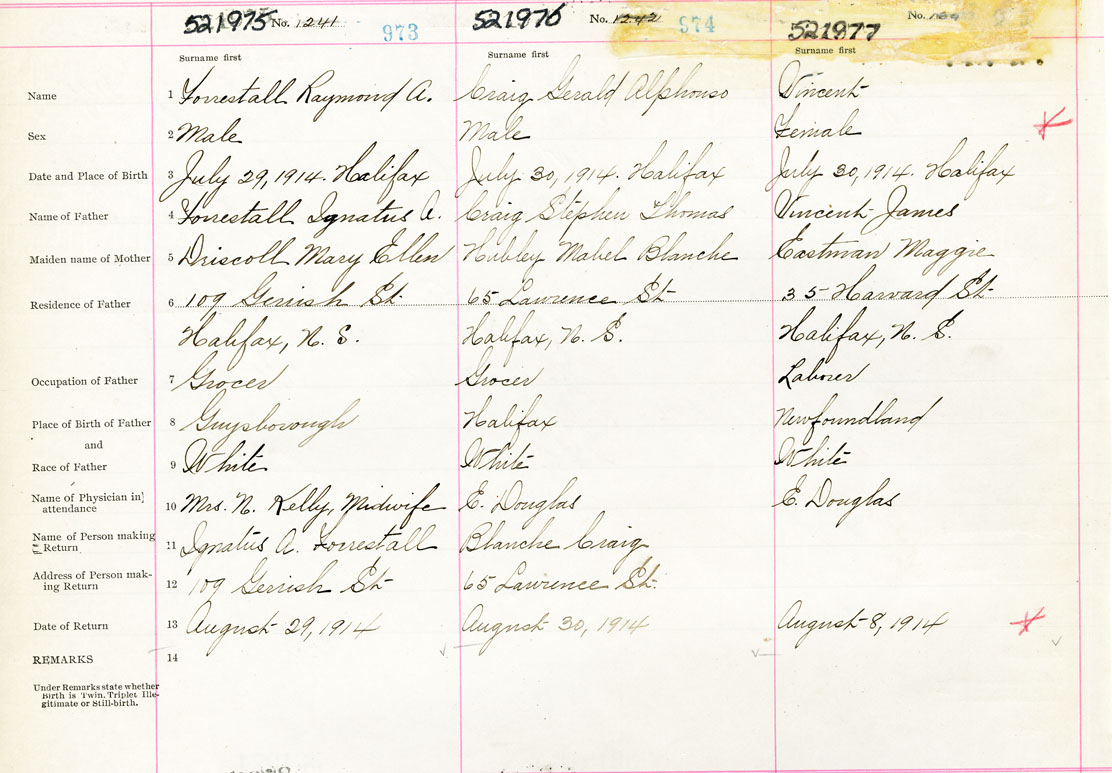 521975 No. 1241 973 521976 No. 1242 974 521977 No.
Surname first Surname first Surname first
Name 1 Forrestall Raymond A. Craig Gerald Alphonso Vincent
Sex 2 Male Male Female
Date and Place of Birth 3 July 29, 1914. Halifax July 30, 1914. Halifax July 30, 1914. Halifax
Name of Father 4 Forrestall Ignatus A. Craig Stephen Thomas Vincent James
Maiden name of Mother 5 Driscoll Mary Ellen Hubley Mabel Blanche Eastman Maggie
Residence of Father 6 109 Gerrish St. 65 Lawrence St 35 Harvard St
Halifax, N. S. Halifax, N. S. Halifax, N. S.
Occupation of Father 7 Grocer Grocer Laborer
Place of Birth of Father 8 Guysborough Halifax Newfoundland
and
Race of Father 9 White White White
Name of Physician in}
attendance 10 Mrs. N. Kelly, Midwife E. Douglas E. Douglas
Name of Person making
Return 11 Ignatus A. Forrestall Blanche Craig
Address of Person mak-
ing Return 12 109 Gerrish St 65 Lawrence St.
Date of Return 13 August 29, 1914 August 30, 1914 August 8, 1914
REMARKS 14
Under Remarks state whether
Birth is Twin, Triplet Ille-
gitimate or Still-birth.